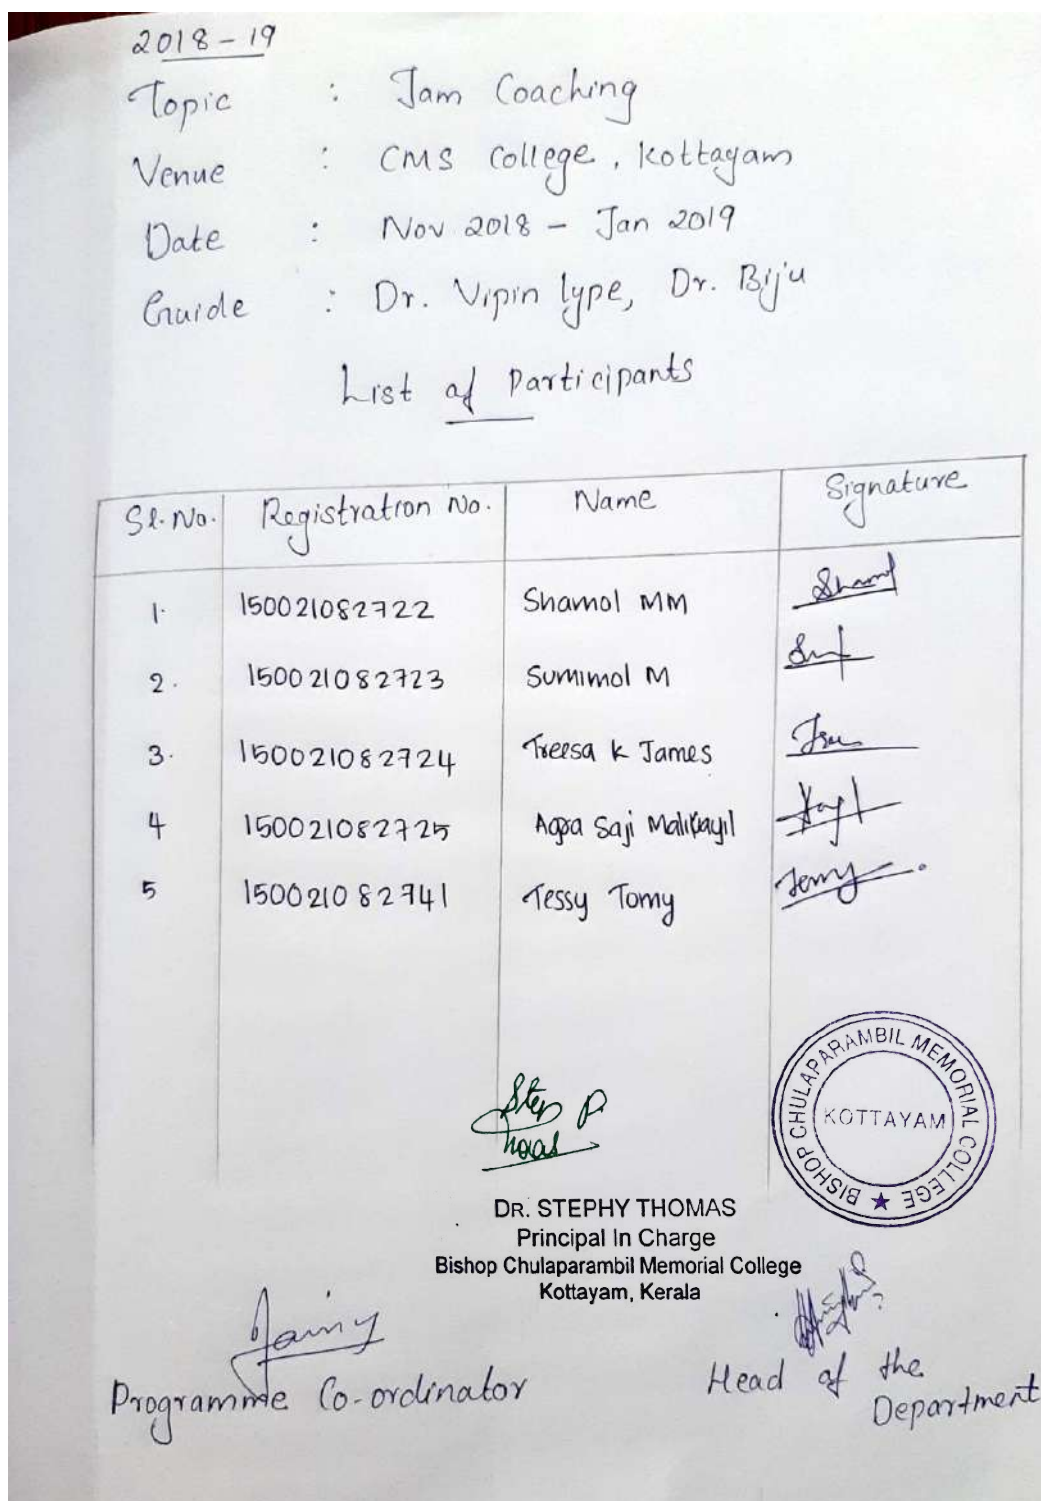 2018-19
Topic : Jam Coaching
Venue : CMS College, Kottayam
Date : Nov 2018 - Jan 2019
Guide : Dr. Vipin Iype, Dr. Biju
List of Participants
Sl. No. Registration No. Name Signature
1. 150021082722 Shamol MM Shamol
2. 150021082723 Sumimol M
3. 150021082724 Treesa K James
4 150021082725 Saji
5 150021082741 Tessy Tomy
BISHOP CHULAPARAMBIL MEMORIAL COLLEGE ★
KOTTAYAM
DR. STEPHY THOMAS
Principal In Charge
Bishop Chulaparambil Memorial College
Kottayam, Kerala
Programme Co-ordinator
Head of the
Department